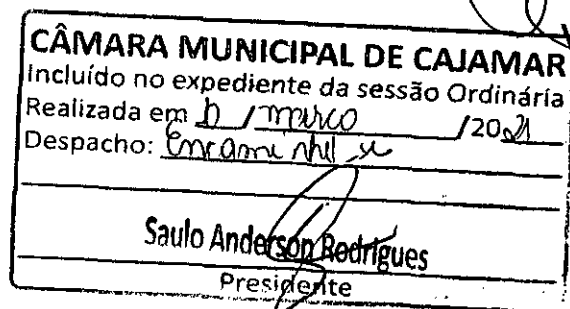 CÂMARA MUNICIPAL DE CAJAMAR
Incluído no expediente da sessão Ordinária
Realizada em / março /2021
Despacho: Encaminhe-se
Saulo Anderson Rodrigues
Presidente